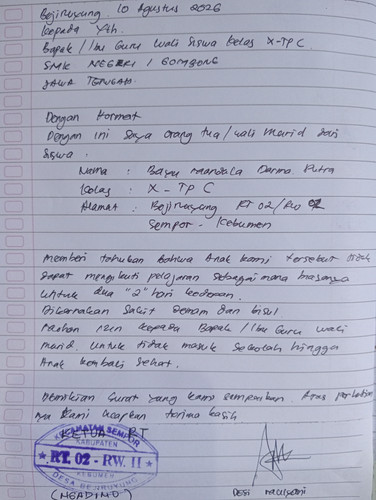 Bejiruyung, 10 Agustus 2026
Kepada Yth.
Bapak / Ibu Guru wali Siswa Kelas X-TPC
SMK NEGERI 1 GOMBONG
JAWA TENGAH.
Dengan Hormat
Dengan ini Saya orang tua / wali Murid dari
Siswa.
Nama : Bayu Mandala Darma Putra
Kelas : X - TP C
Alamat : Bejiruyung RT 02 / RW 02
Sempor - Kebumen
Memberi tahukan Bahwa Anak kami tersebut tidak
dapat mengikuti pelajaran Sebagaimana biasanya
untuk dua "2" hari kedepan.
Dikarenakan Sakit Demam dan bisul
Mohon izin kepada Bapak / Ibu Guru wali
murid. Untuk tidak masuk Sekolah hingga
Anak kembali Sehat.
Demikian Surat yang kami sampaikan. Atas perhatian
nya Kami ucapkan terima kasih
KETUA RT
KECAMATAN SEMPOR
KABUPATEN
RT. 02 - RW. II
KEBUMEN
DESA BEJIRUYUNG
(MEADIMO)
DESI